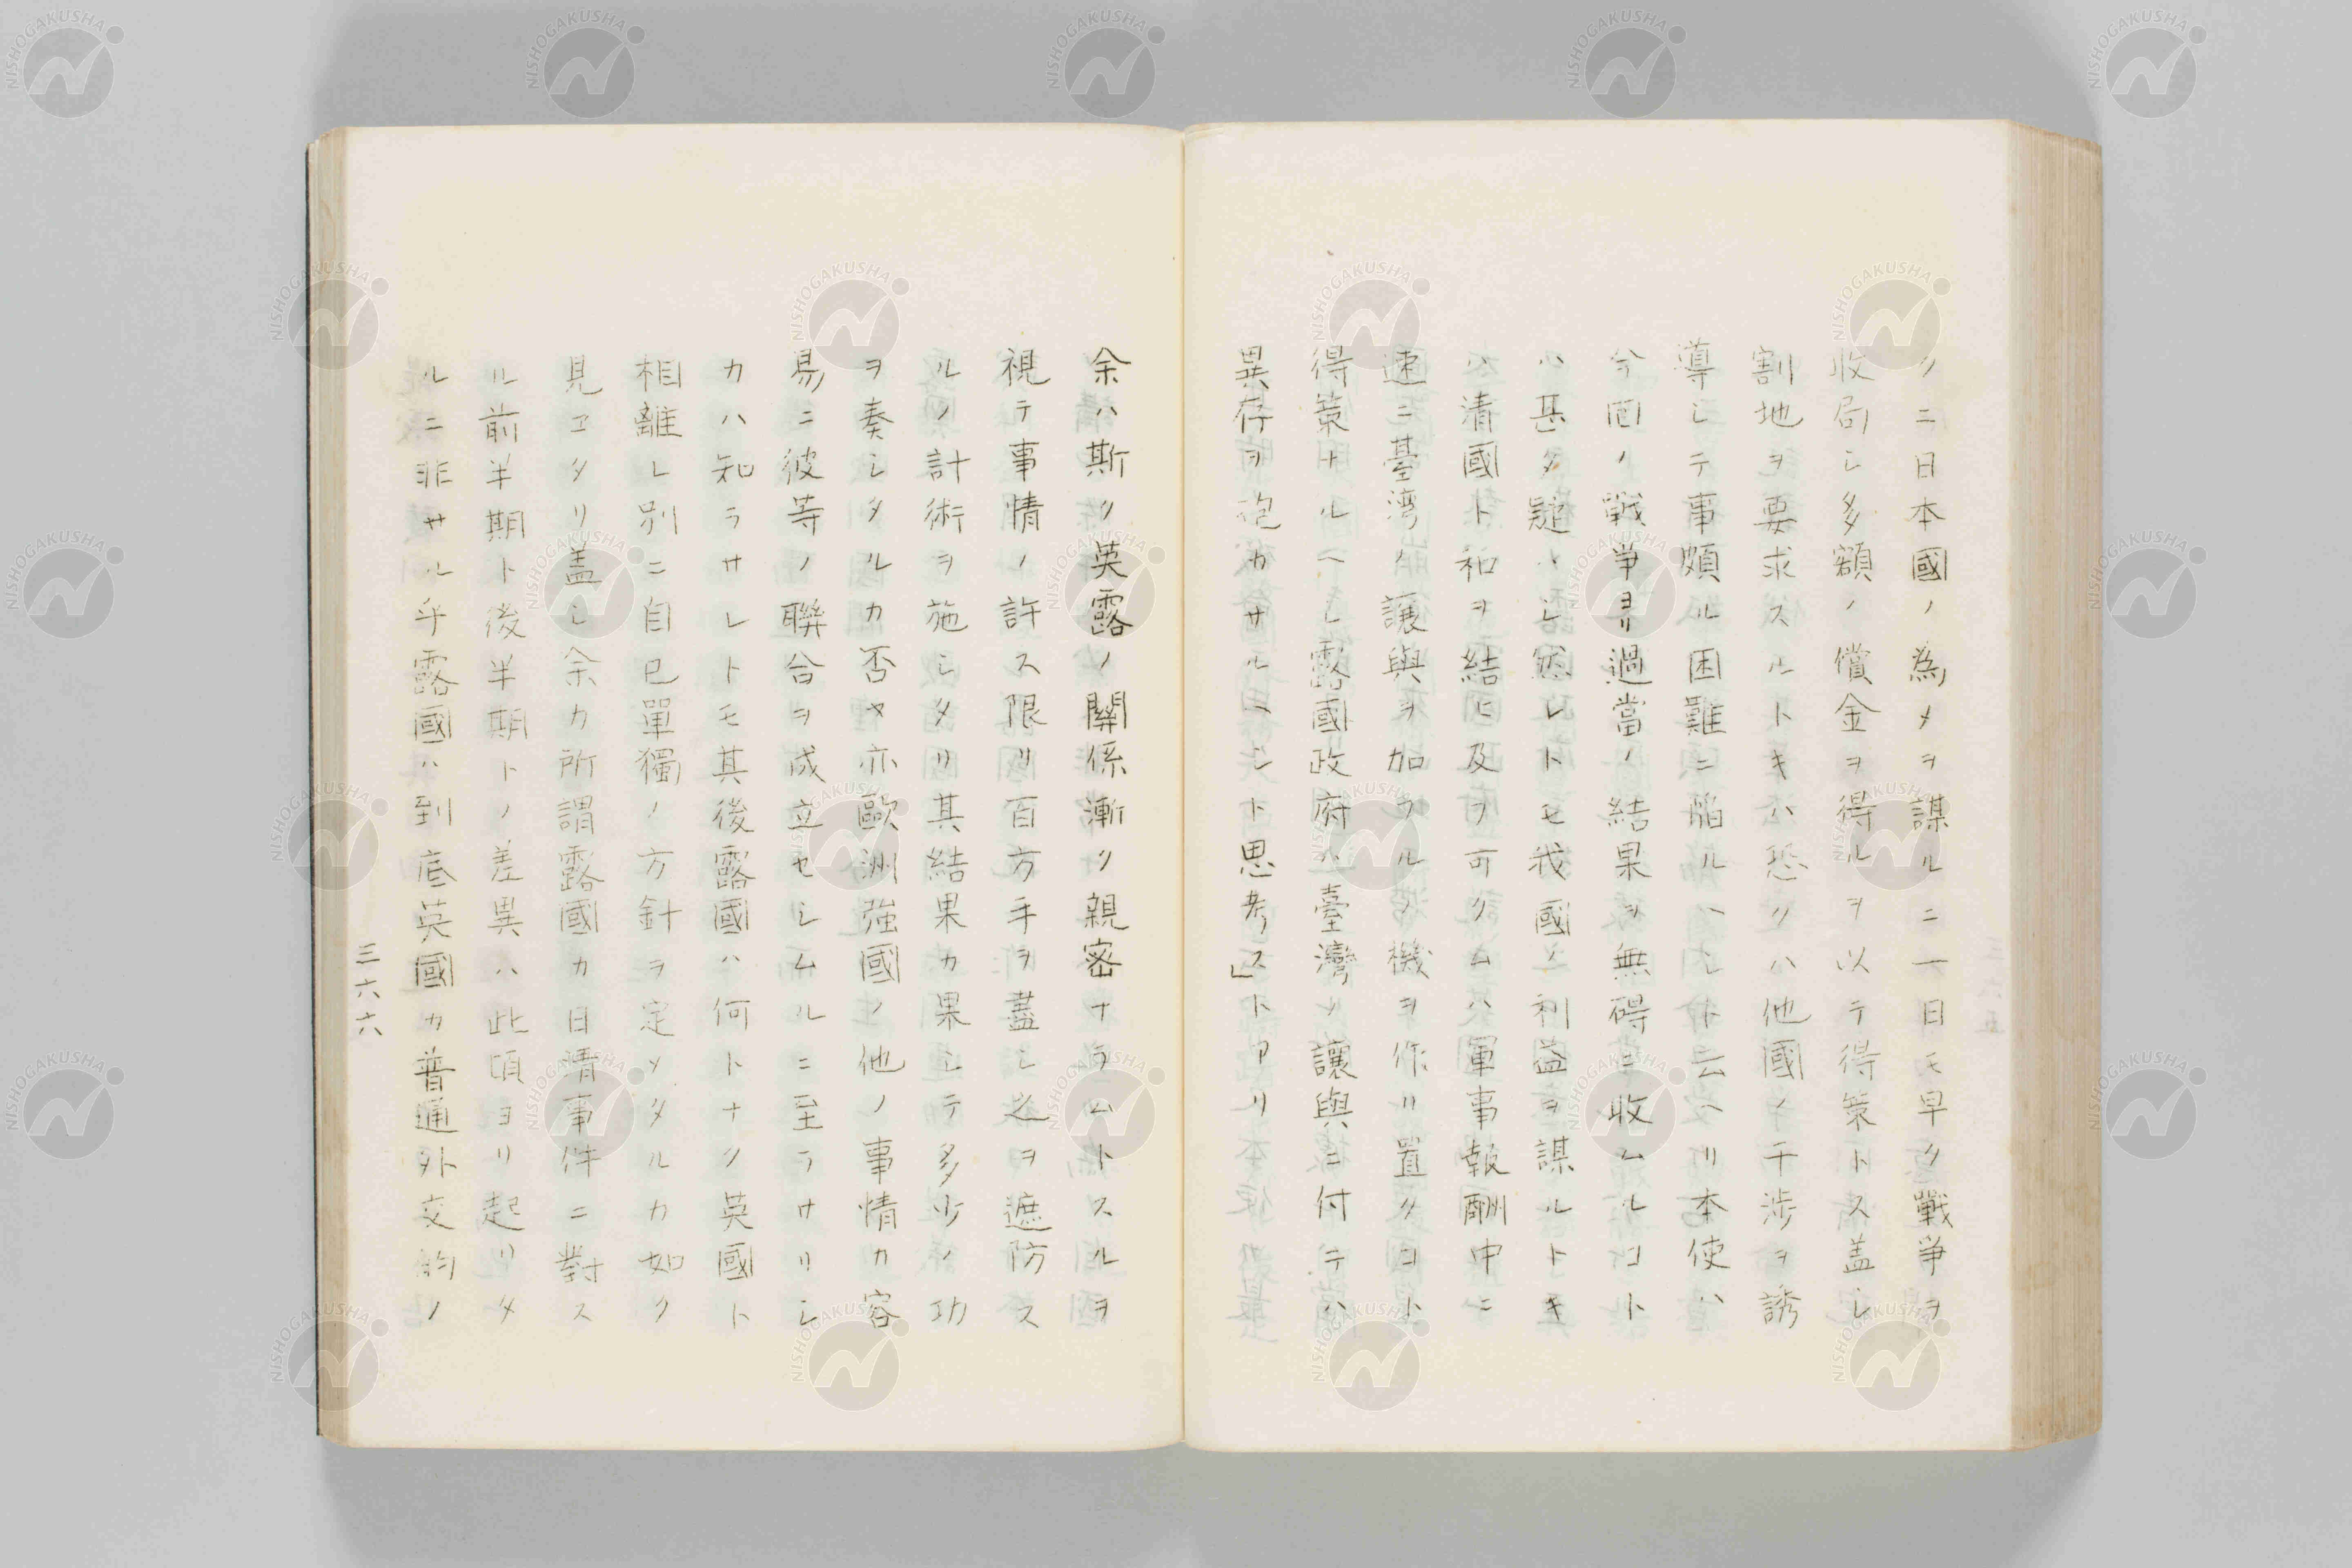 クニ日本國ノ為メヲ謀ルニ一日モ早ク戰爭ヲ
收局シ多額ノ償金ヲ得ルヲ以テ得策トス盖シ
割地ヲ要求スルトキハ恐クハ他國ノ干渉ヲ誘
導シテ事頗ル困難ニ陥ルヘシト云ヘリ本使ハ
今回ノ戰爭ヨリ過當ノ結果ヲ無碍ニ收ムルコト
ハ甚タ疑ハシ然レトモ我國ノ利益ヲ謀ルトキ
ハ清國ト和ヲ結ヒ及ヲ可クムハ軍事報酬中ニ
速ニ臺湾ノ譲與ヲ加フルノ機ヲ作リ置クコト
得策ナルヘシ露國政府ハ臺灣ノ讓與ニ付テハ
異存ヲ抱カサルヘシト思考ス」トアリ
余ハ斯ク英露ノ關係漸ク親密ナラムトスルヲ
視テ事情ノ許ス限リ百方手ヲ盡シ之ヲ遮防ス
ルノ計術ヲ施シタリ其結果カ果シテ多少ノ功
ヲ奏シタルカ否ヤ亦歐洲強國ノ他ノ事情カ容
易ニ彼等ノ聯合ヲ成立セシムルニ至ラサリシ
カハ知ラサレトモ其後露國ハ何トナク英國ト
相離レ別ニ自己單獨ノ方針ヲ定メタルカ如ク
見ヱタリ盖シ余カ所謂露國カ日清事件ニ對ス
ル前半期ト後半期トノ差異ハ此頃ヨリ起リタ
ルニ非サル乎露國ハ到底英國カ普通外交的ノ
三六六
NISHOGAKUSHA